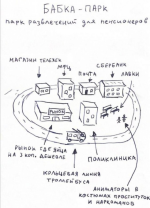 БАБКА-ПАРК
ПАРК РАЗВЛЕЧЕНИЙ ДЛЯ ПЕНСИОНЕРОВ
МАГАЗИН ТЕЛЕЖЕК
МФЦ
ПОЧТА
СБЕРБАНК
ЛАВКИ
РЫНОК ГДЕ ЯЙЦА
НА 3 КОП. ДЕШЕВЛЕ
ПОЛИКЛИНИКА
КОЛЬЦЕВАЯ ЛИНИЯ
ТРОЛЛЕЙБУСА
АНИМАТОРЫ В
КОСТЮМАХ ПРОСТИТУТОК
И НАРКОМАНОВ